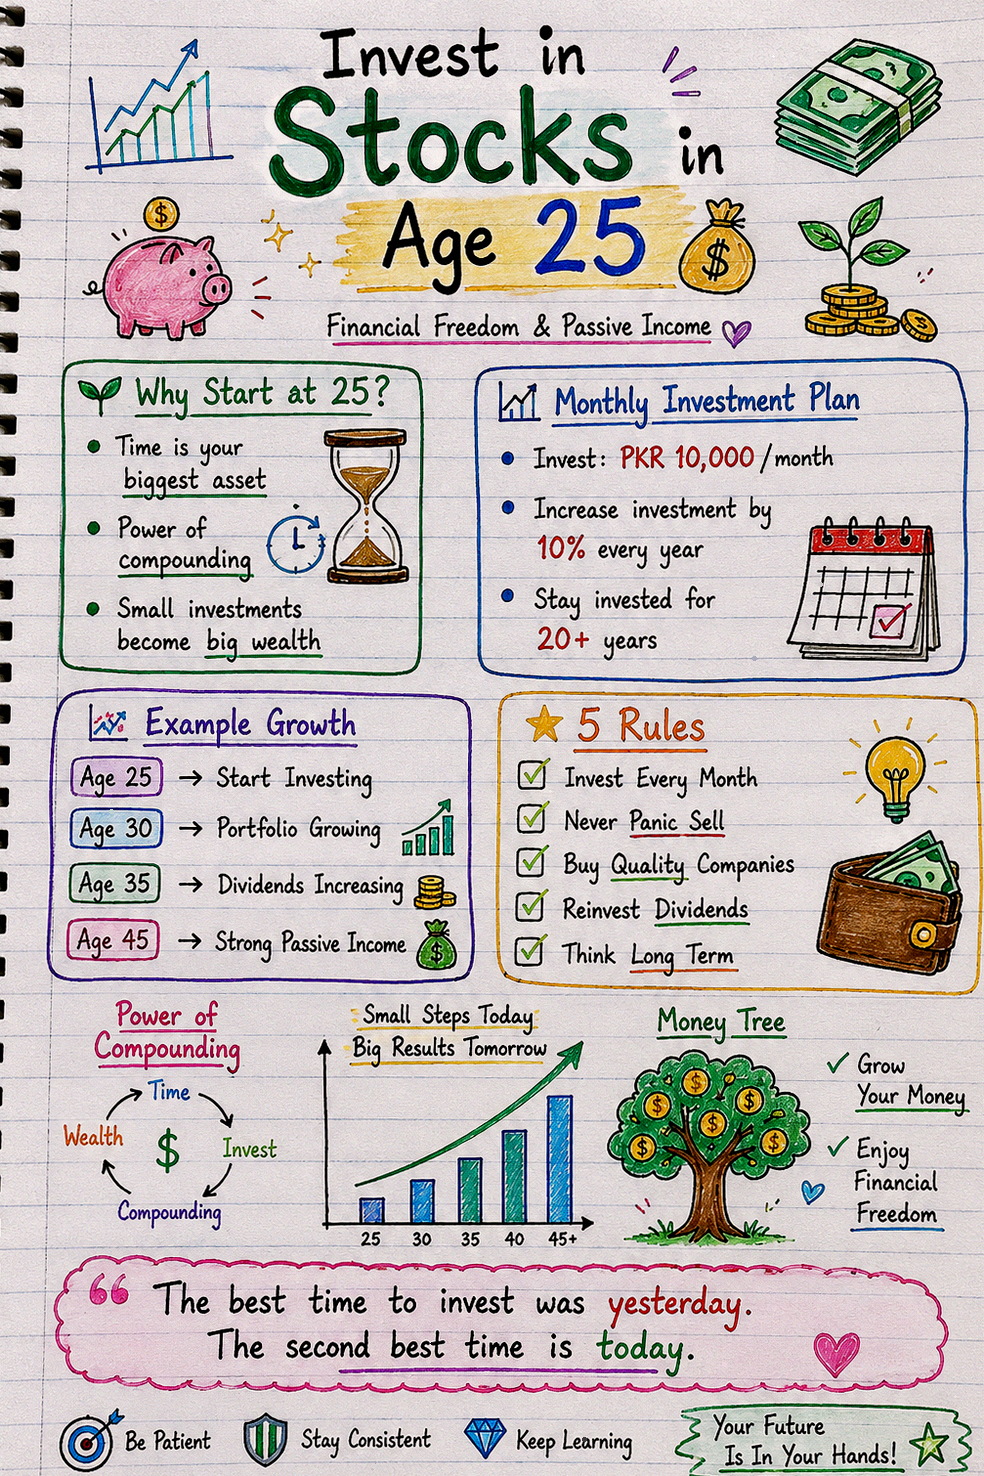 Invest in
Stocks in
Age 25
Financial Freedom & Passive Income
Why Start at 25?
Time is your
biggest asset
Power of
compounding
Small investments
become big wealth
Monthly Investment Plan
Invest: PKR 10,000/month
Increase investment by
10% every year
Stay invested for
20+ years
Example Growth
Age 25 → Start Investing
Age 30 → Portfolio Growing
Age 35 → Dividends Increasing
Age 45 → Strong Passive Income
5 Rules
Invest Every Month
Never Panic Sell
Buy Quality Companies
Reinvest Dividends
Think Long Term
Power of
Compounding
Time
Wealth
$
Invest
Compounding
Small Steps Today
Big Results Tomorrow
25 30 35 40 45+
Money Tree
Grow
Your Money
Enjoy
Financial
Freedom
“The best time to invest was yesterday.
The second best time is today.
Be Patient
Stay Consistent
Keep Learning
Your Future
Is In Your Hands!